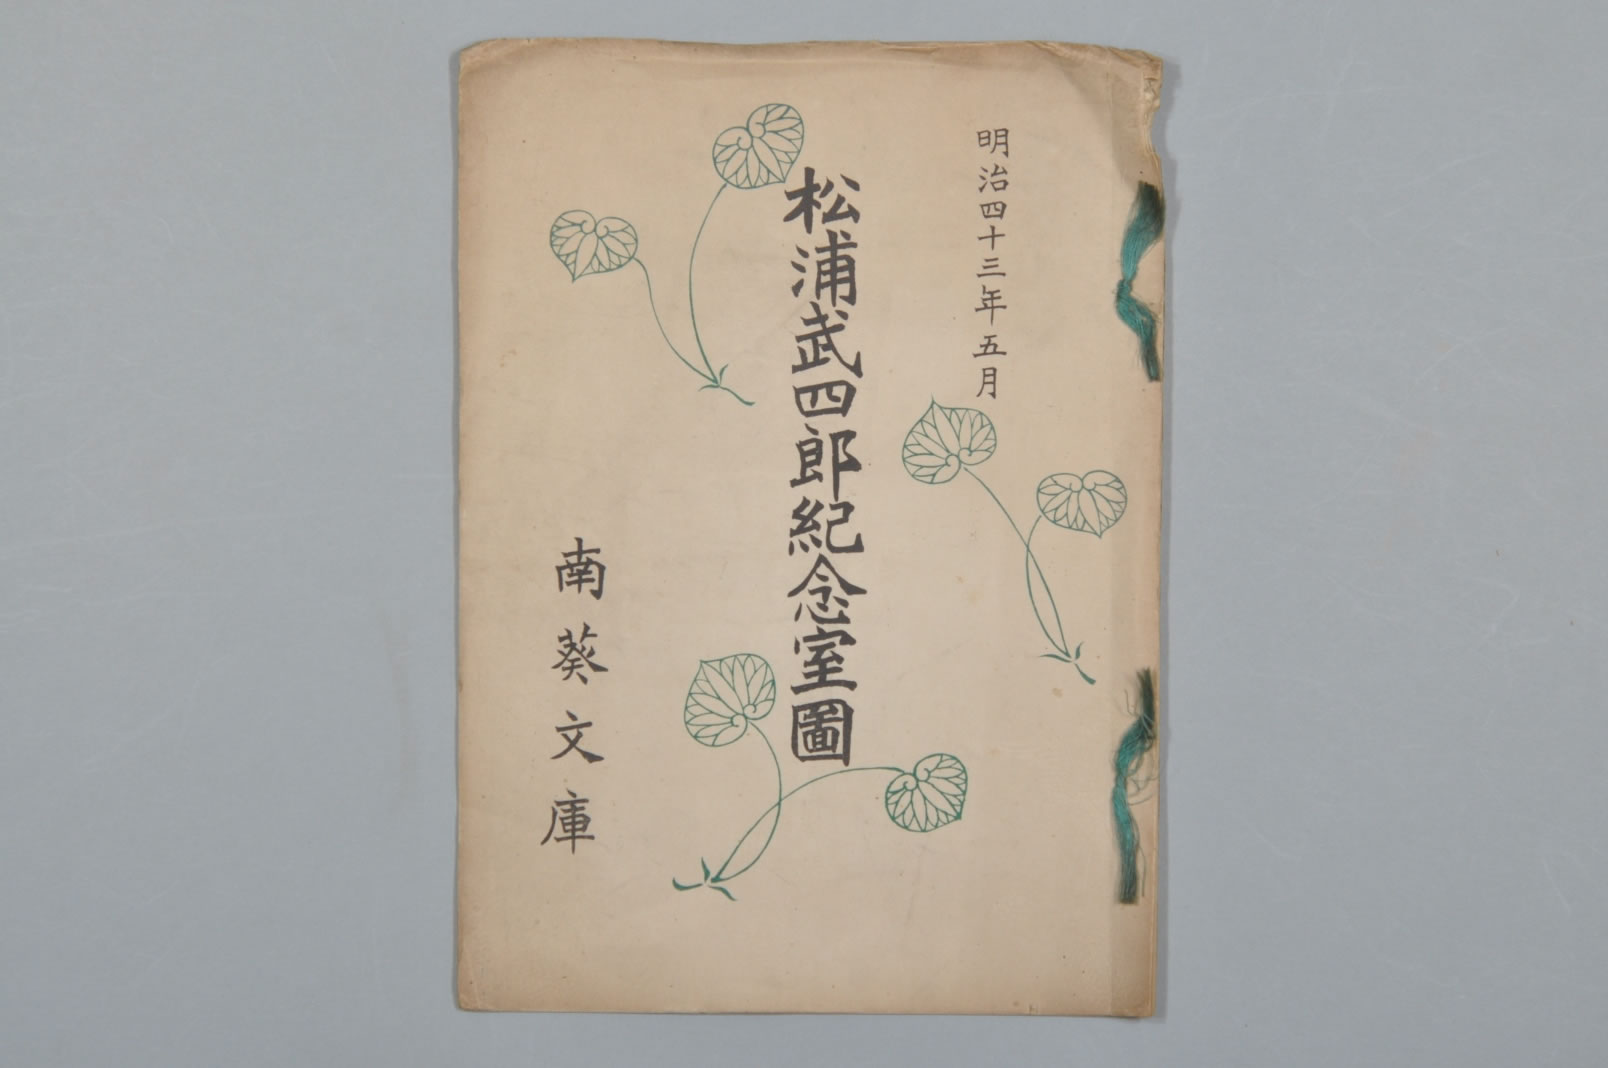 明治四十三年五月
松浦武四郎紀念室圖
南葵文庫